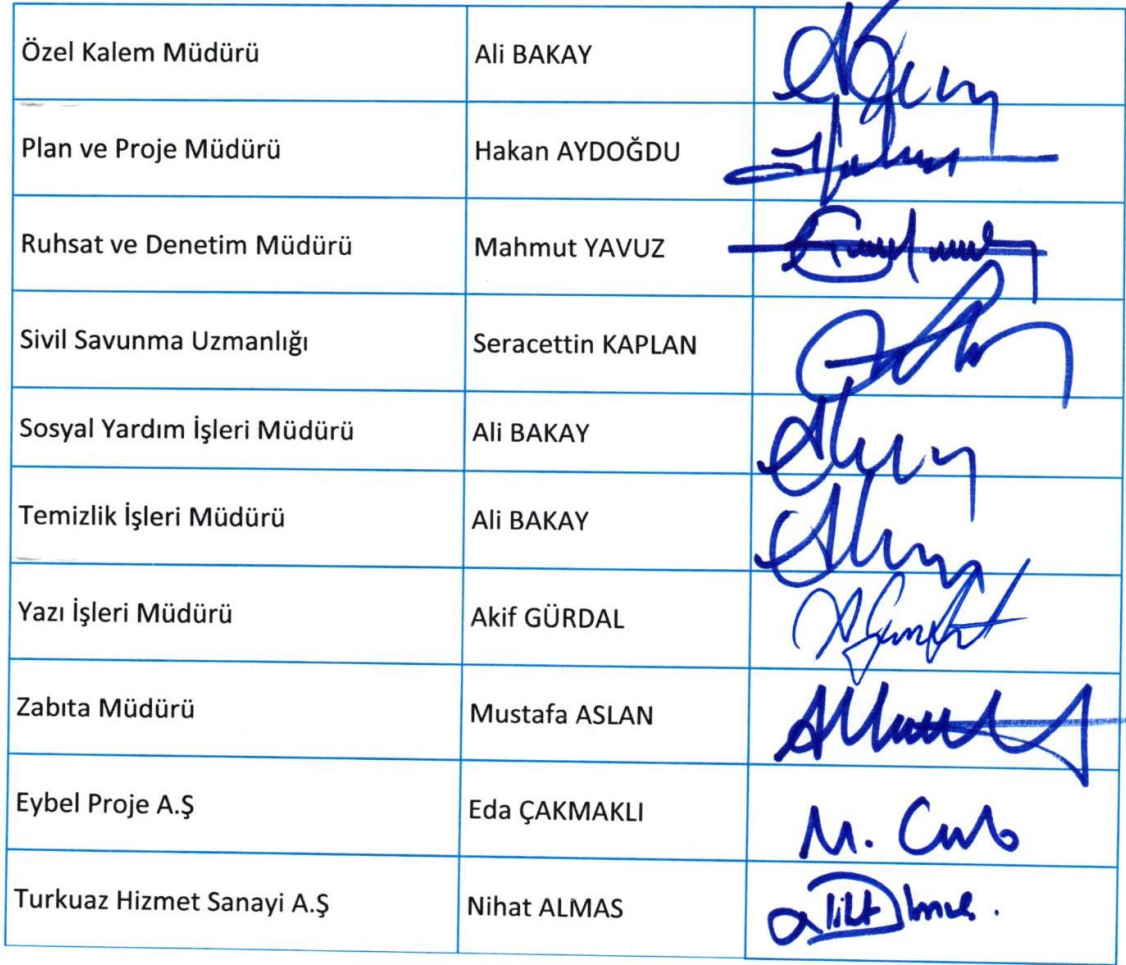 Özel Kalem Müdürü Ali BAKAY
Plan ve Proje Müdürü Hakan AYDOĞDU
Ruhsat ve Denetim Müdürü Mahmut YAVUZ
Sivil Savunma Uzmanlığı Seracettin KAPLAN
Sosyal Yardım İşleri Müdürü Ali BAKAY
Temizlik İşleri Müdürü Ali BAKAY
Yazı İşleri Müdürü Akif GÜRDAL
Zabıta Müdürü Mustafa ASLAN
Eybel Proje A.Ş Eda ÇAKMAKLI
Turkuaz Hizmet Sanayi A.Ş Nihat ALMAS